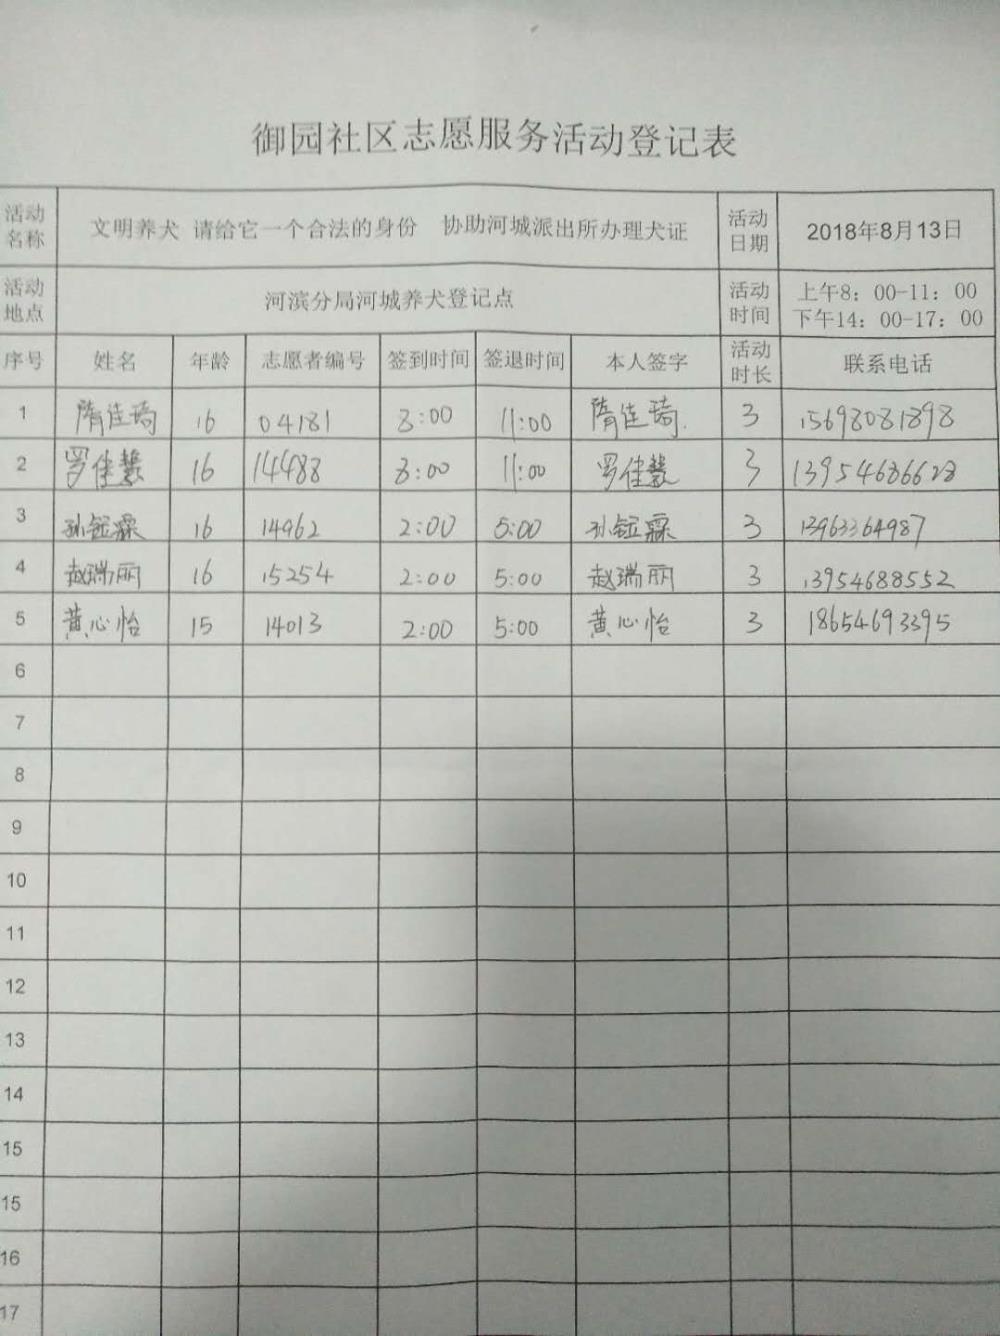 御园社区志愿服务活动登记表
活动名称 文明养犬 请给它一个合法的身份 协助河城派出所办理犬证 活动日期 2018年8月13日
活动地点 河滨分局河城养犬登记点 活动时间 上午8：00-11：00 下午14：00-17：00
序号 姓名 年龄 志愿者编号 签到时间 签退时间 本人签字 活动时长 联系电话
1 隋佳琦 16 04181 8:00 11:00 隋佳琦 3 15698081898
2 罗佳慧 16 14488 8:00 11:00 罗佳慧 3 13954686628
3 孙钰霖 16 14962 2:00 5:00 孙钰霖 3 13963364987
4 赵瑞丽 16 15254 2:00 5:00 赵瑞丽 3 13954688552
5 黄心怡 15 14013 2:00 5:00 黄心怡 3 18654693395
6
7
8
9
10
11
12
13
14
15
15
16
17